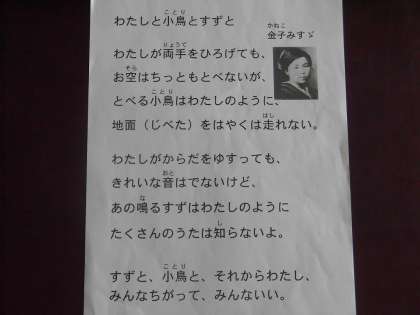 わたしと小鳥とすずと
金子みすゞ
わたしが両手をひろげても、
お空はちっともとべないが、
とべる小鳥はわたしのように、
地面（じべた）をはやくは走れない。
わたしがからだをゆすっても、
きれいな音はでないけど、
あの鳴るすずはわたしのように
たくさんのうたは知らないよ。
すずと、小鳥と、それからわたし、
みんなちがって、みんないい。